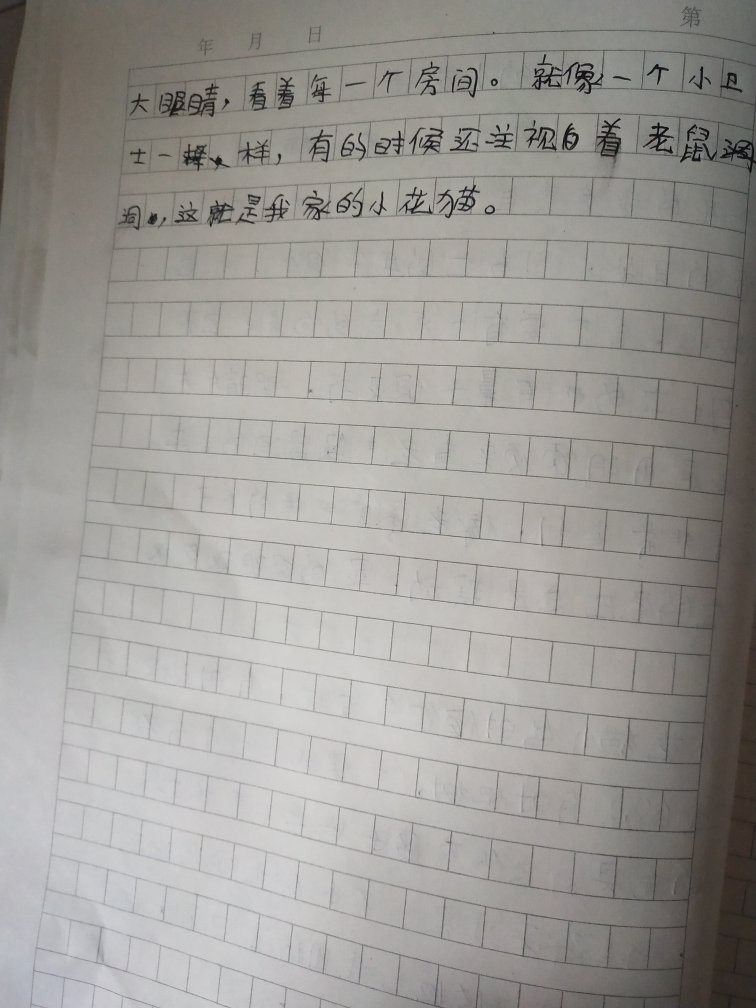 年 月 日 第
大眼睛，看着每一个房间。就像一个小卫
士一样，有的时候还注视自着老鼠洞
洞，这就是我家的小花猫。